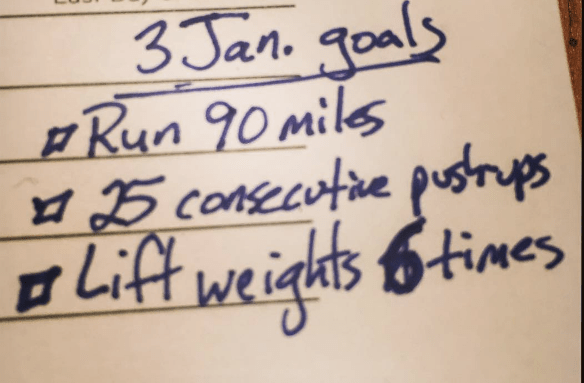 3 Jan. goals
Run 90 miles
25 consecutive pushups
Lift weights 6 times